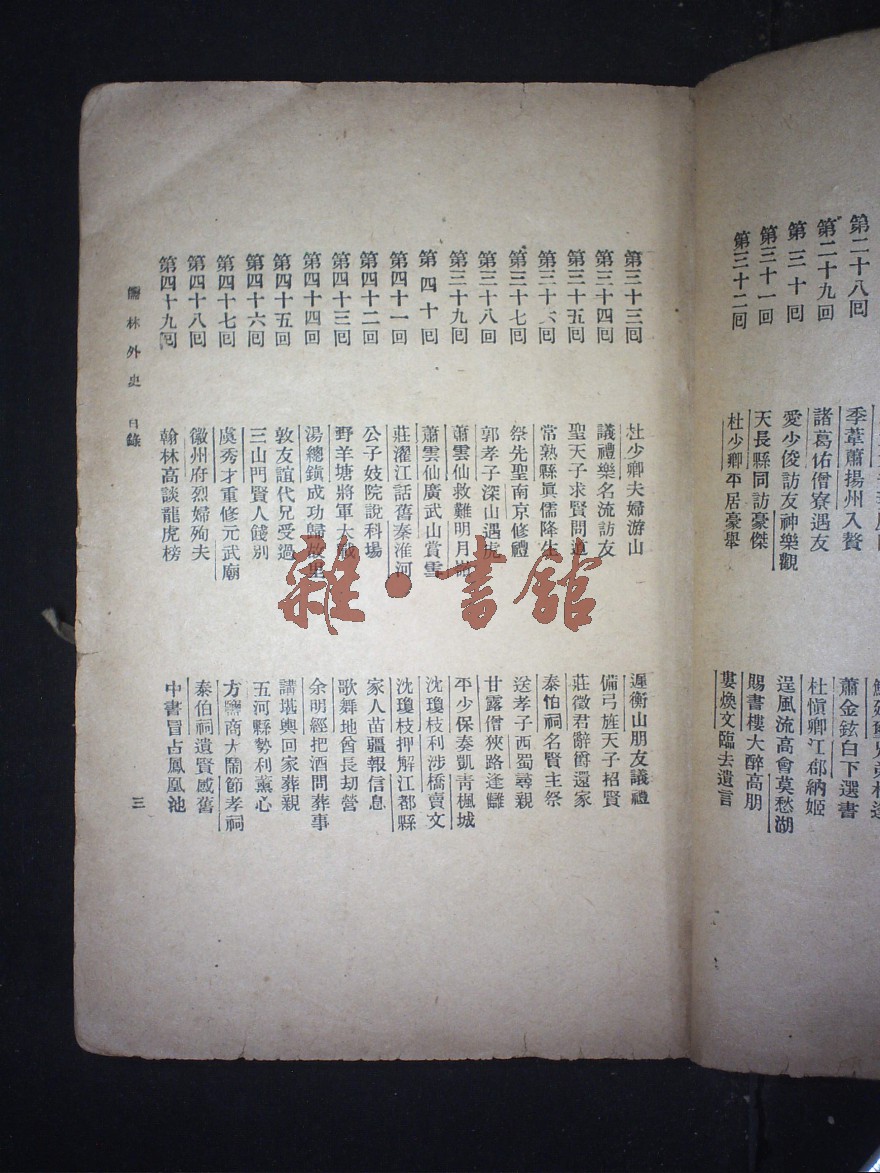 第二十八回 季葦蕭揚州入贅 蕭金鉉白下選書
第二十九回 諸葛佑僧寮遇友 杜愼卿江郡納姬
第三十回 愛少俊訪友神樂觀 逞風流高會莫愁湖
第三十一回 天長縣同訪豪傑 賜書樓大醉高朋
第三十二回 杜少卿平居豪舉 婁煥文臨去遺言
第三十三回 杜少卿夫婦游山 遲衡山朋友議禮
第三十四回 議禮樂名流訪友 備弓旌天子招賢
第三十五回 聖天子求賢問道 莊徵君辭爵還家
第三十六回 常熟縣眞儒降生 泰伯祠名賢主祭
第三十七回 祭先聖南京修禮 送孝子西蜀尋親
第三十八回 郭孝子深山遇虎 甘露僧狹路逢讎
第三十九回 蕭雲仙救難明月嶺 平少保奏凱青楓城
第四十回 蕭雲仙廣武山賞雪 沈瓊枝利涉橋賣文
第四十一回 莊濯江話舊秦淮河 沈瓊枝押解江都縣
第四十二回 公子妓院說科場 家人苗疆報信息
第四十三回 野羊塘將軍大戰 歌舞地酋長劫營
第四十四回 湯總鎮成功歸故里 余明經把酒問葬事
第四十五回 敦友誼代兄受過 講堪輿回家葬親
第四十六回 三山門賢人餞別 五河縣勢利薰心
第四十七回 虞秀才重修元武廟 方鹽商大鬧節孝祠
第四十八回 徽州府烈婦殉夫 泰伯祠遺賢感舊
第四十九回 翰林高談龍虎榜 中書冒占鳳凰池
儒林外史 目錄 三
雜·書館